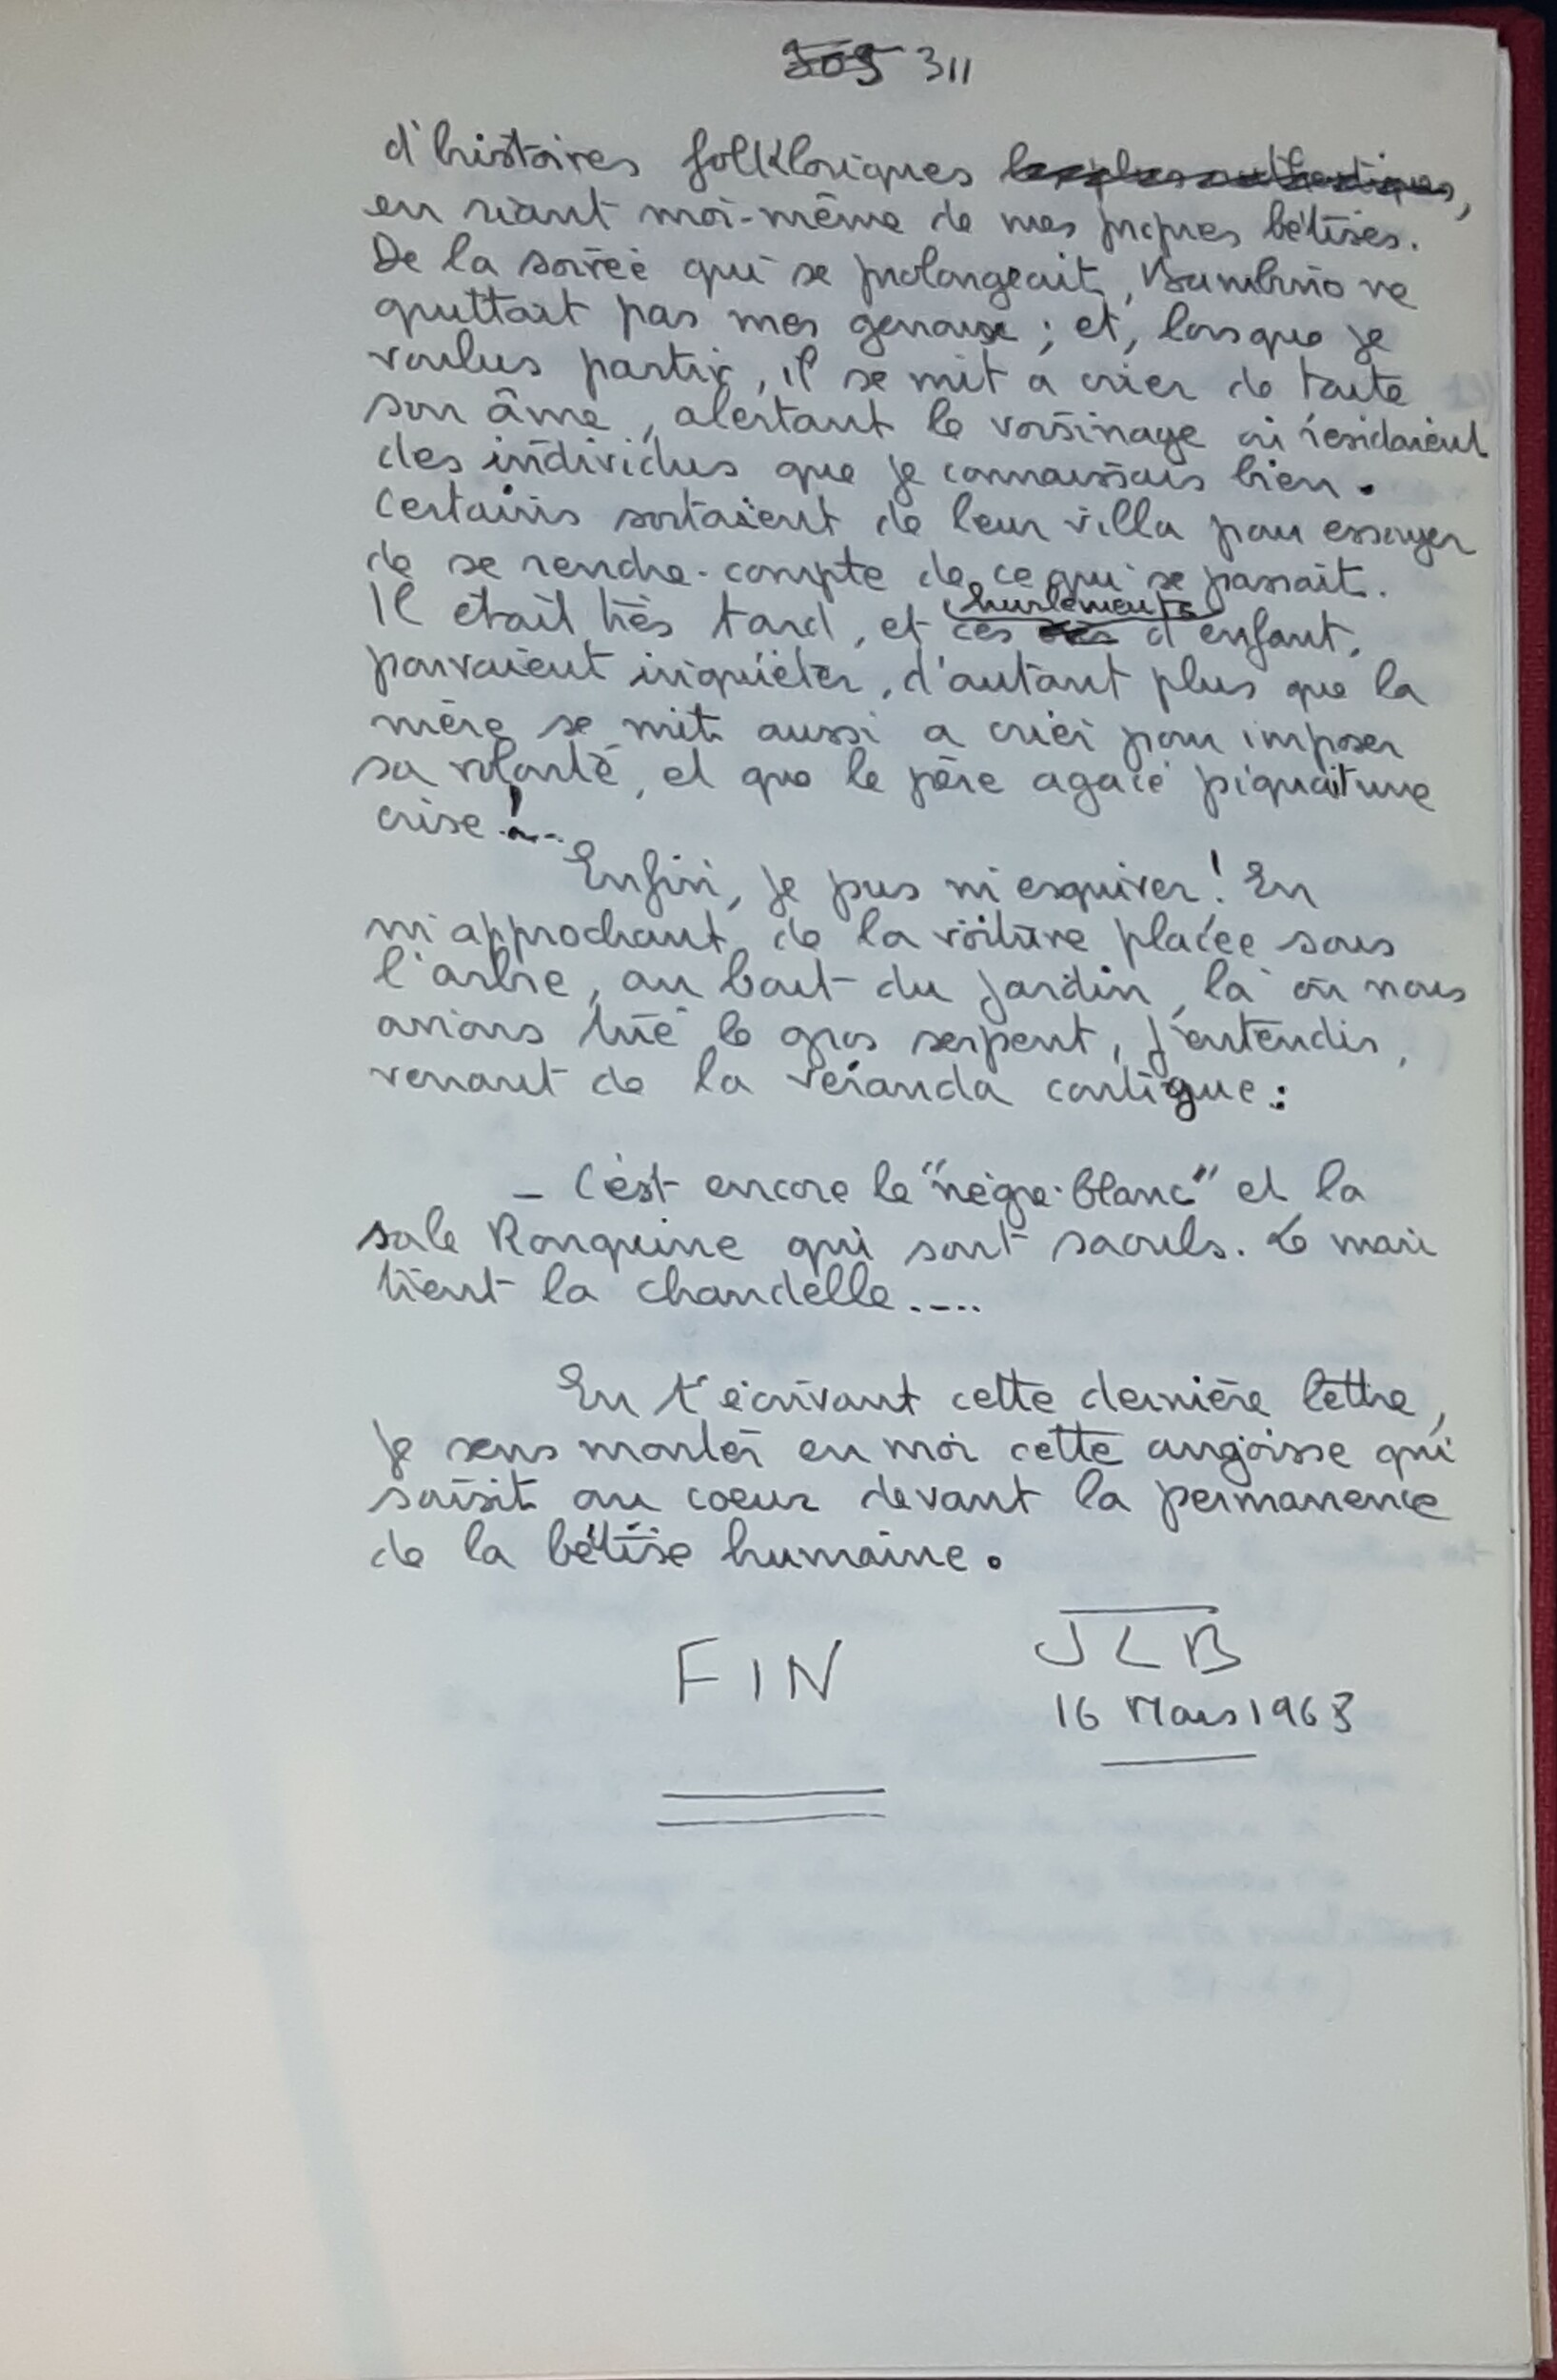 309 311
d'histoires folkloriques les plus authentiques,
en riant moi-même de mes propres bêtises.
De la soirée qui se prolongeait, Bambino ne
quittait pas mes genoux ; et, lorsque je
voulus partir, il se mit à crier de toute
son âme, alertant le voisinage où résidaient
des individus que je connaissais bien.
Certains sortaient de leur villa pour essayer
de se rendre-compte de ce qui se passait.
hurlements
Il était très tard, et ces cris d'enfant,
pouvaient inquiéter, d'autant plus que la
mère se mit aussi a crier pour imposer
sa volonté, et que le père agacé piquait une
crise !...
Enfin, je pus m'esquiver ! En
m'approchant de la voiture placée sous
l'arbre, au bout du jardin, là où nous
avions tué le gros serpent, j'entendis,
venant de la véranda contigue :
– C'est encore le "nègre-blanc" et la
sale Ronquine qui sont saouls. Le mari
tient la chandelle....
En t'écrivant cette dernière lettre,
je sens monter en moi cette angoisse qui
saisit au coeur devant la permanence
de la bêtise humaine.
JLB
FIN
16 Mars 1963